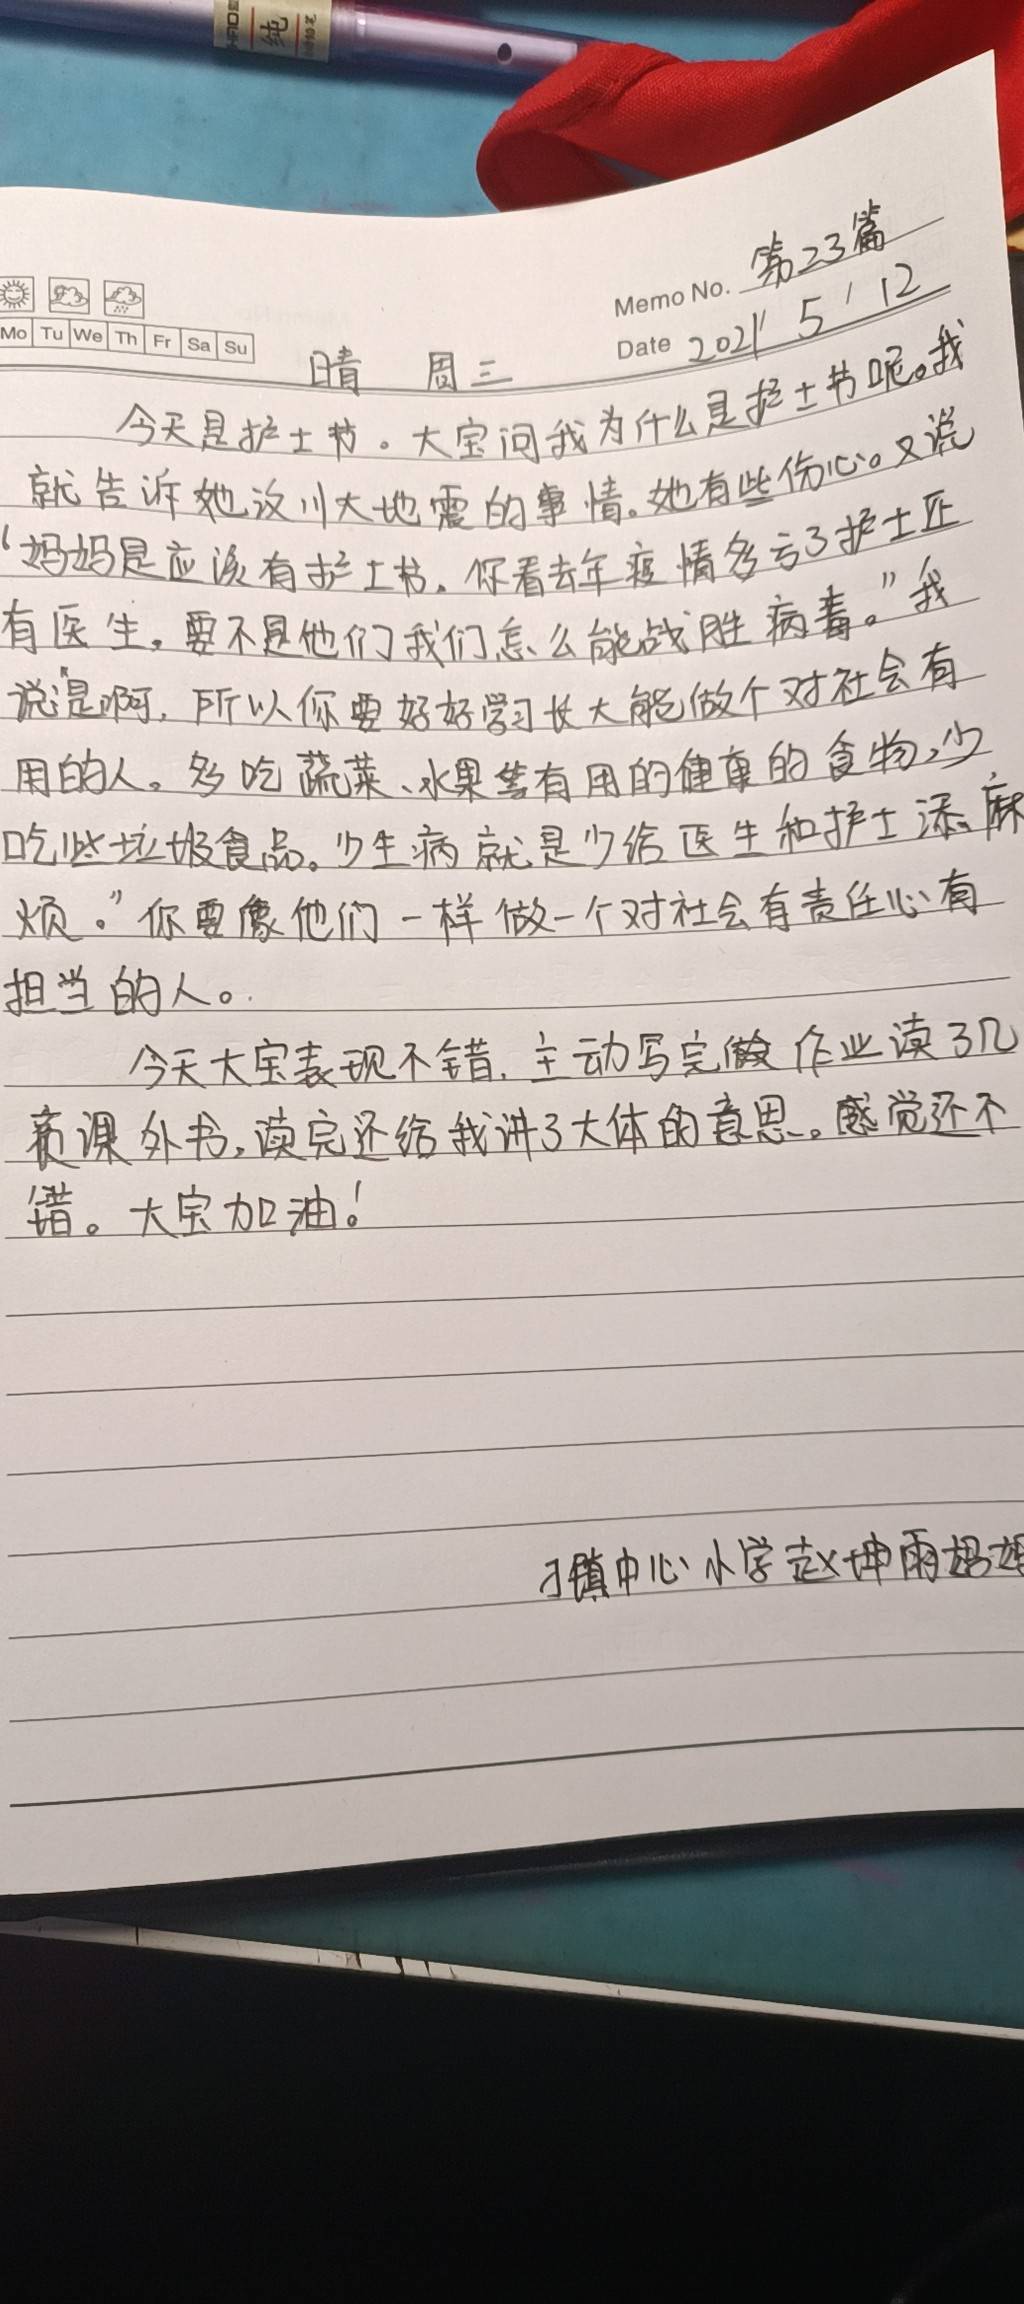 纯
Memo No. 第23篇
Mo Tu We Th Fr Sa Su
Date 2021 5 / 12
晴 周三
今天是护士节。大宝问我为什么是护士节呢。我
就告诉她汶川大地震的事情。她有些伤心。又说
“妈妈是应该有护士节。你看去年疫情多亏了护士还
有医生。要不是他们我们怎么能战胜病毒。”我
说“是啊，所以你要好好学习长大能做个对社会有
用的人。多吃蔬菜、水果等有用的健康的食物，少
吃些垃圾食品。少生病就是少给医生和护士添麻
烦。”你要像他们一样做一个对社会有责任心有
担当的人。
今天大宝表现不错，主动写完做作业读了几
页课外书，读完还给我讲了大体的意思。感觉还不
错。大宝加油！
刁镇中心小学赵坤雨妈妈